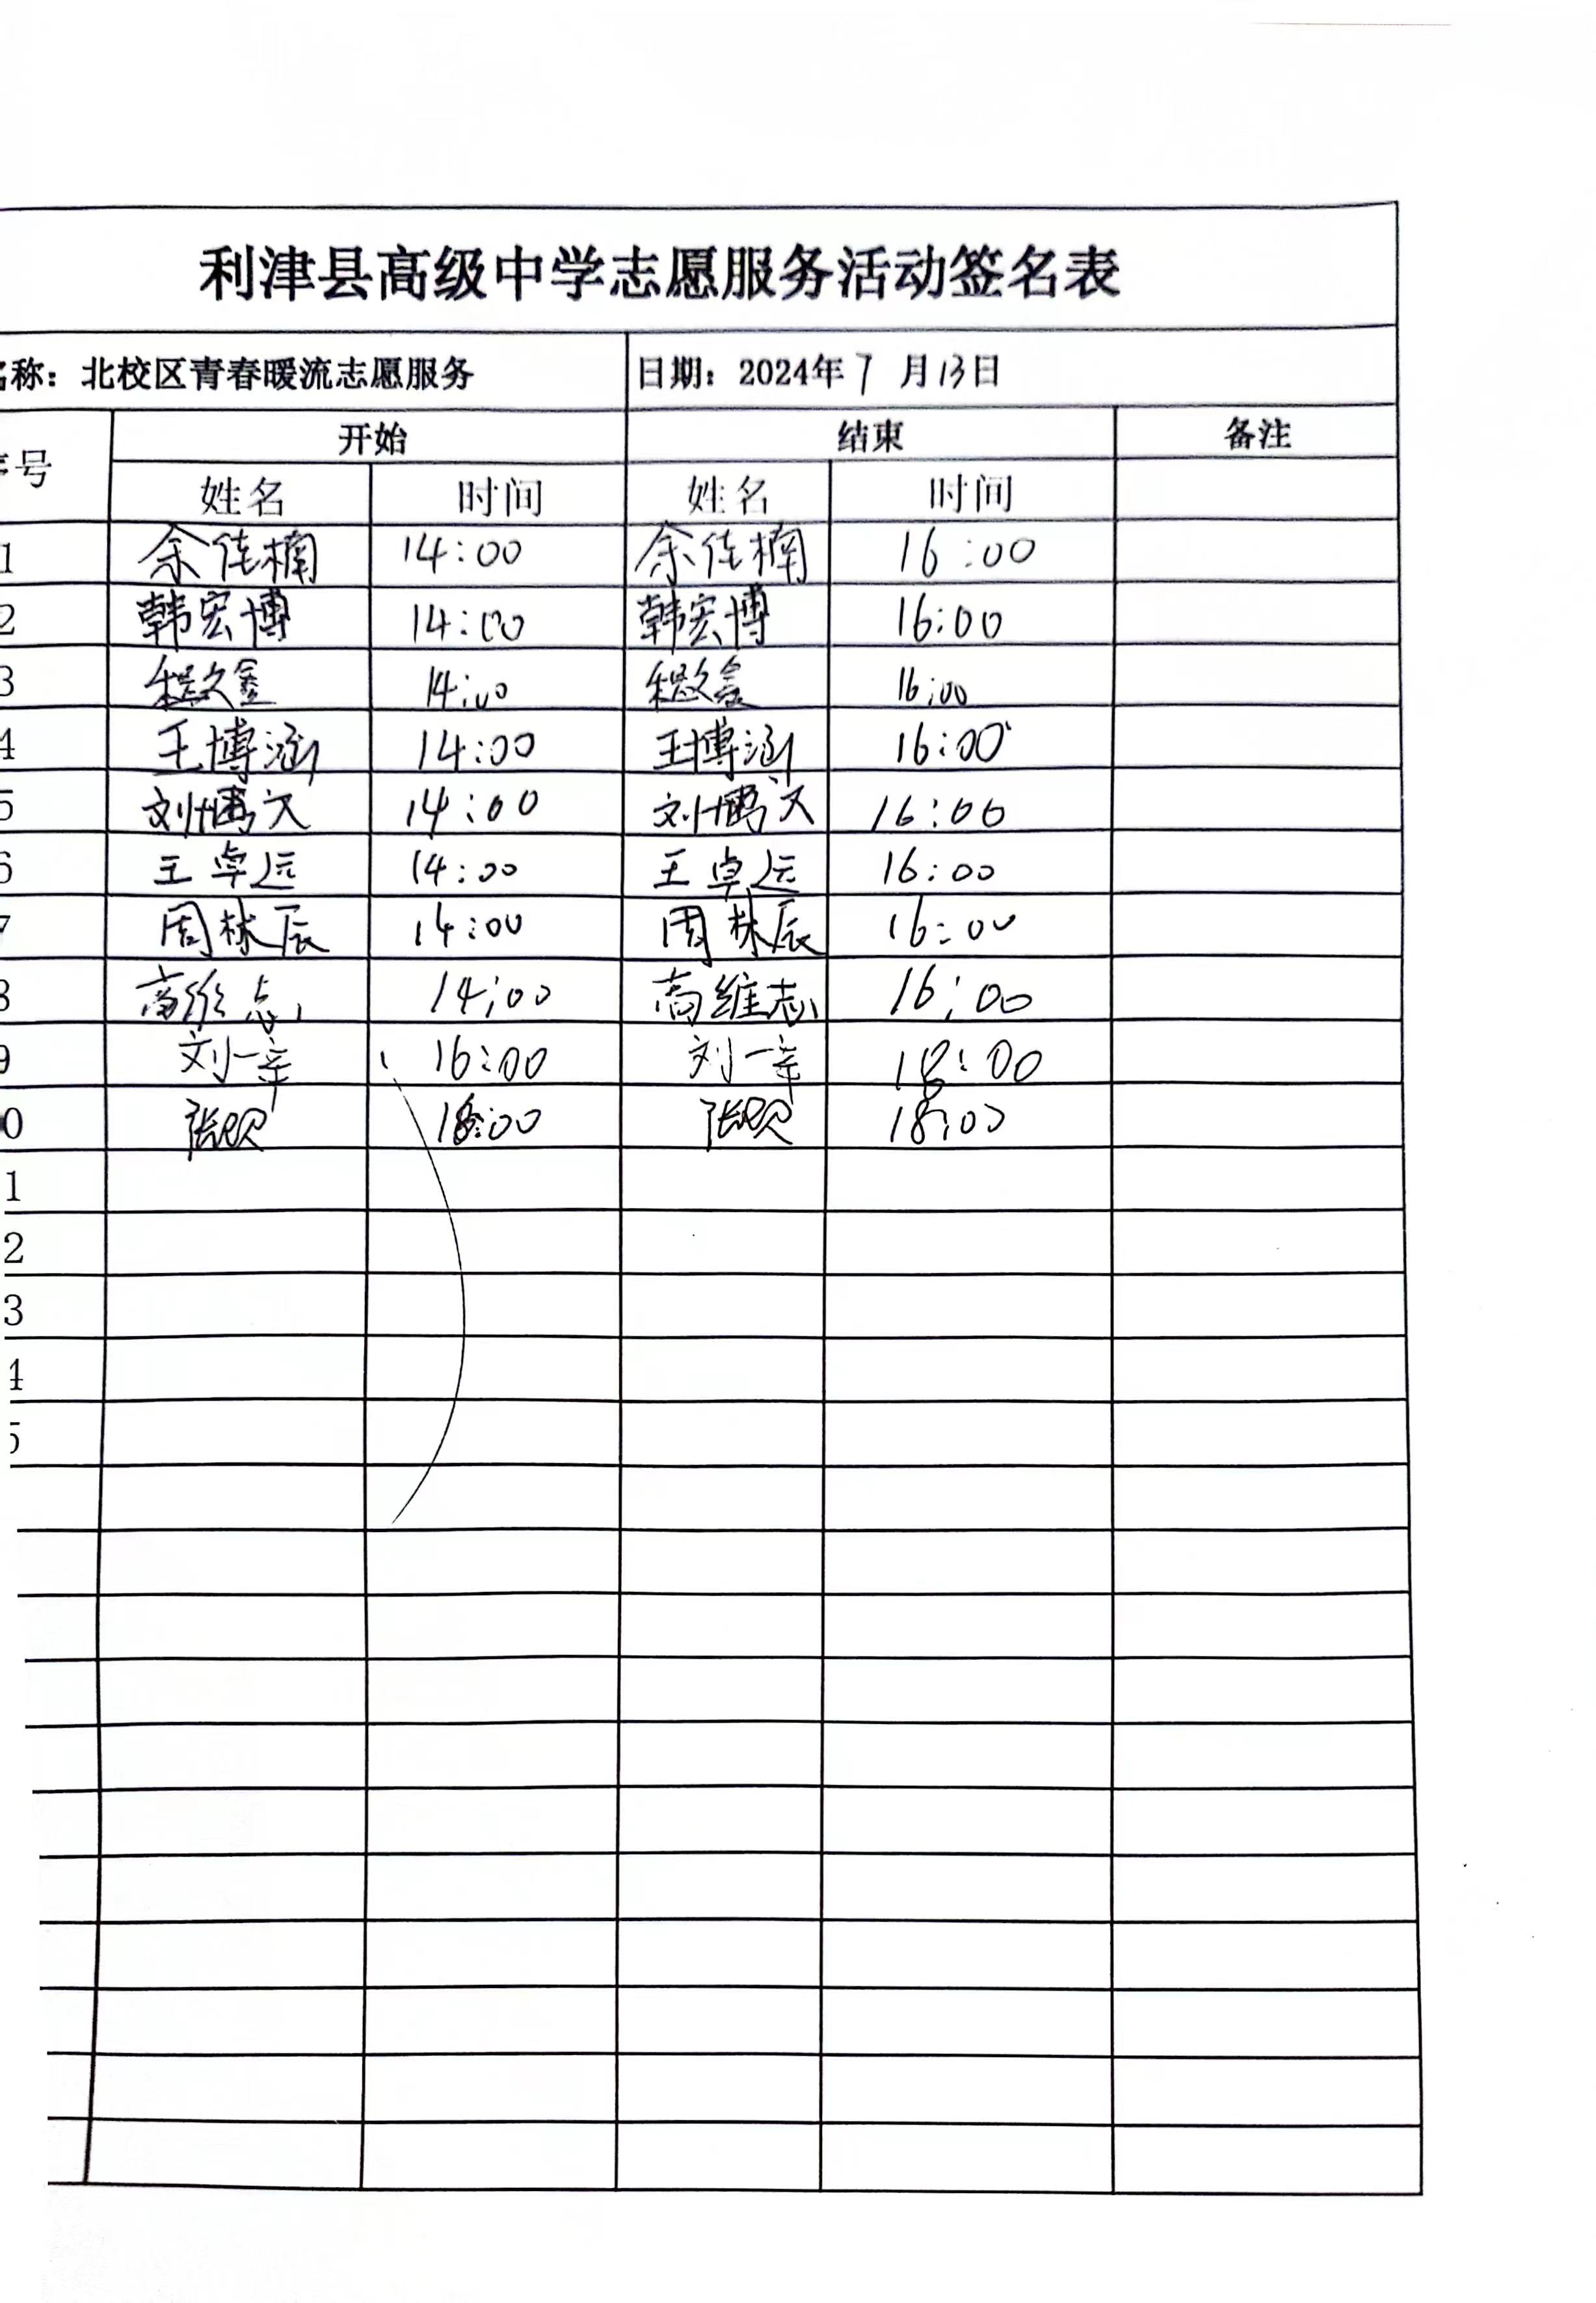 利津县高级中学志愿服务活动签名表
名称：北校区青春暖流志愿服务 日期：2024年7月13日
序号 开始 结束 备注
姓名 时间 姓名 时间
1 余佳楠 14:00 余佳楠 16:00
2 韩宏博 14:00 韩宏博 16:00
3 14:00 16:00
4 王博涵 14:00 王博涵 16:00
5 刘博文 14:00 刘博文 16:00
6 王卓远 14:00 王卓远 16:00
7 周林辰 14:00 周林辰 16:00
8 高维志 14:00 高维志 16:00
9 刘一辛 16:00 刘一辛 18:00
0 18:00 18:00
1
2
3
4
5